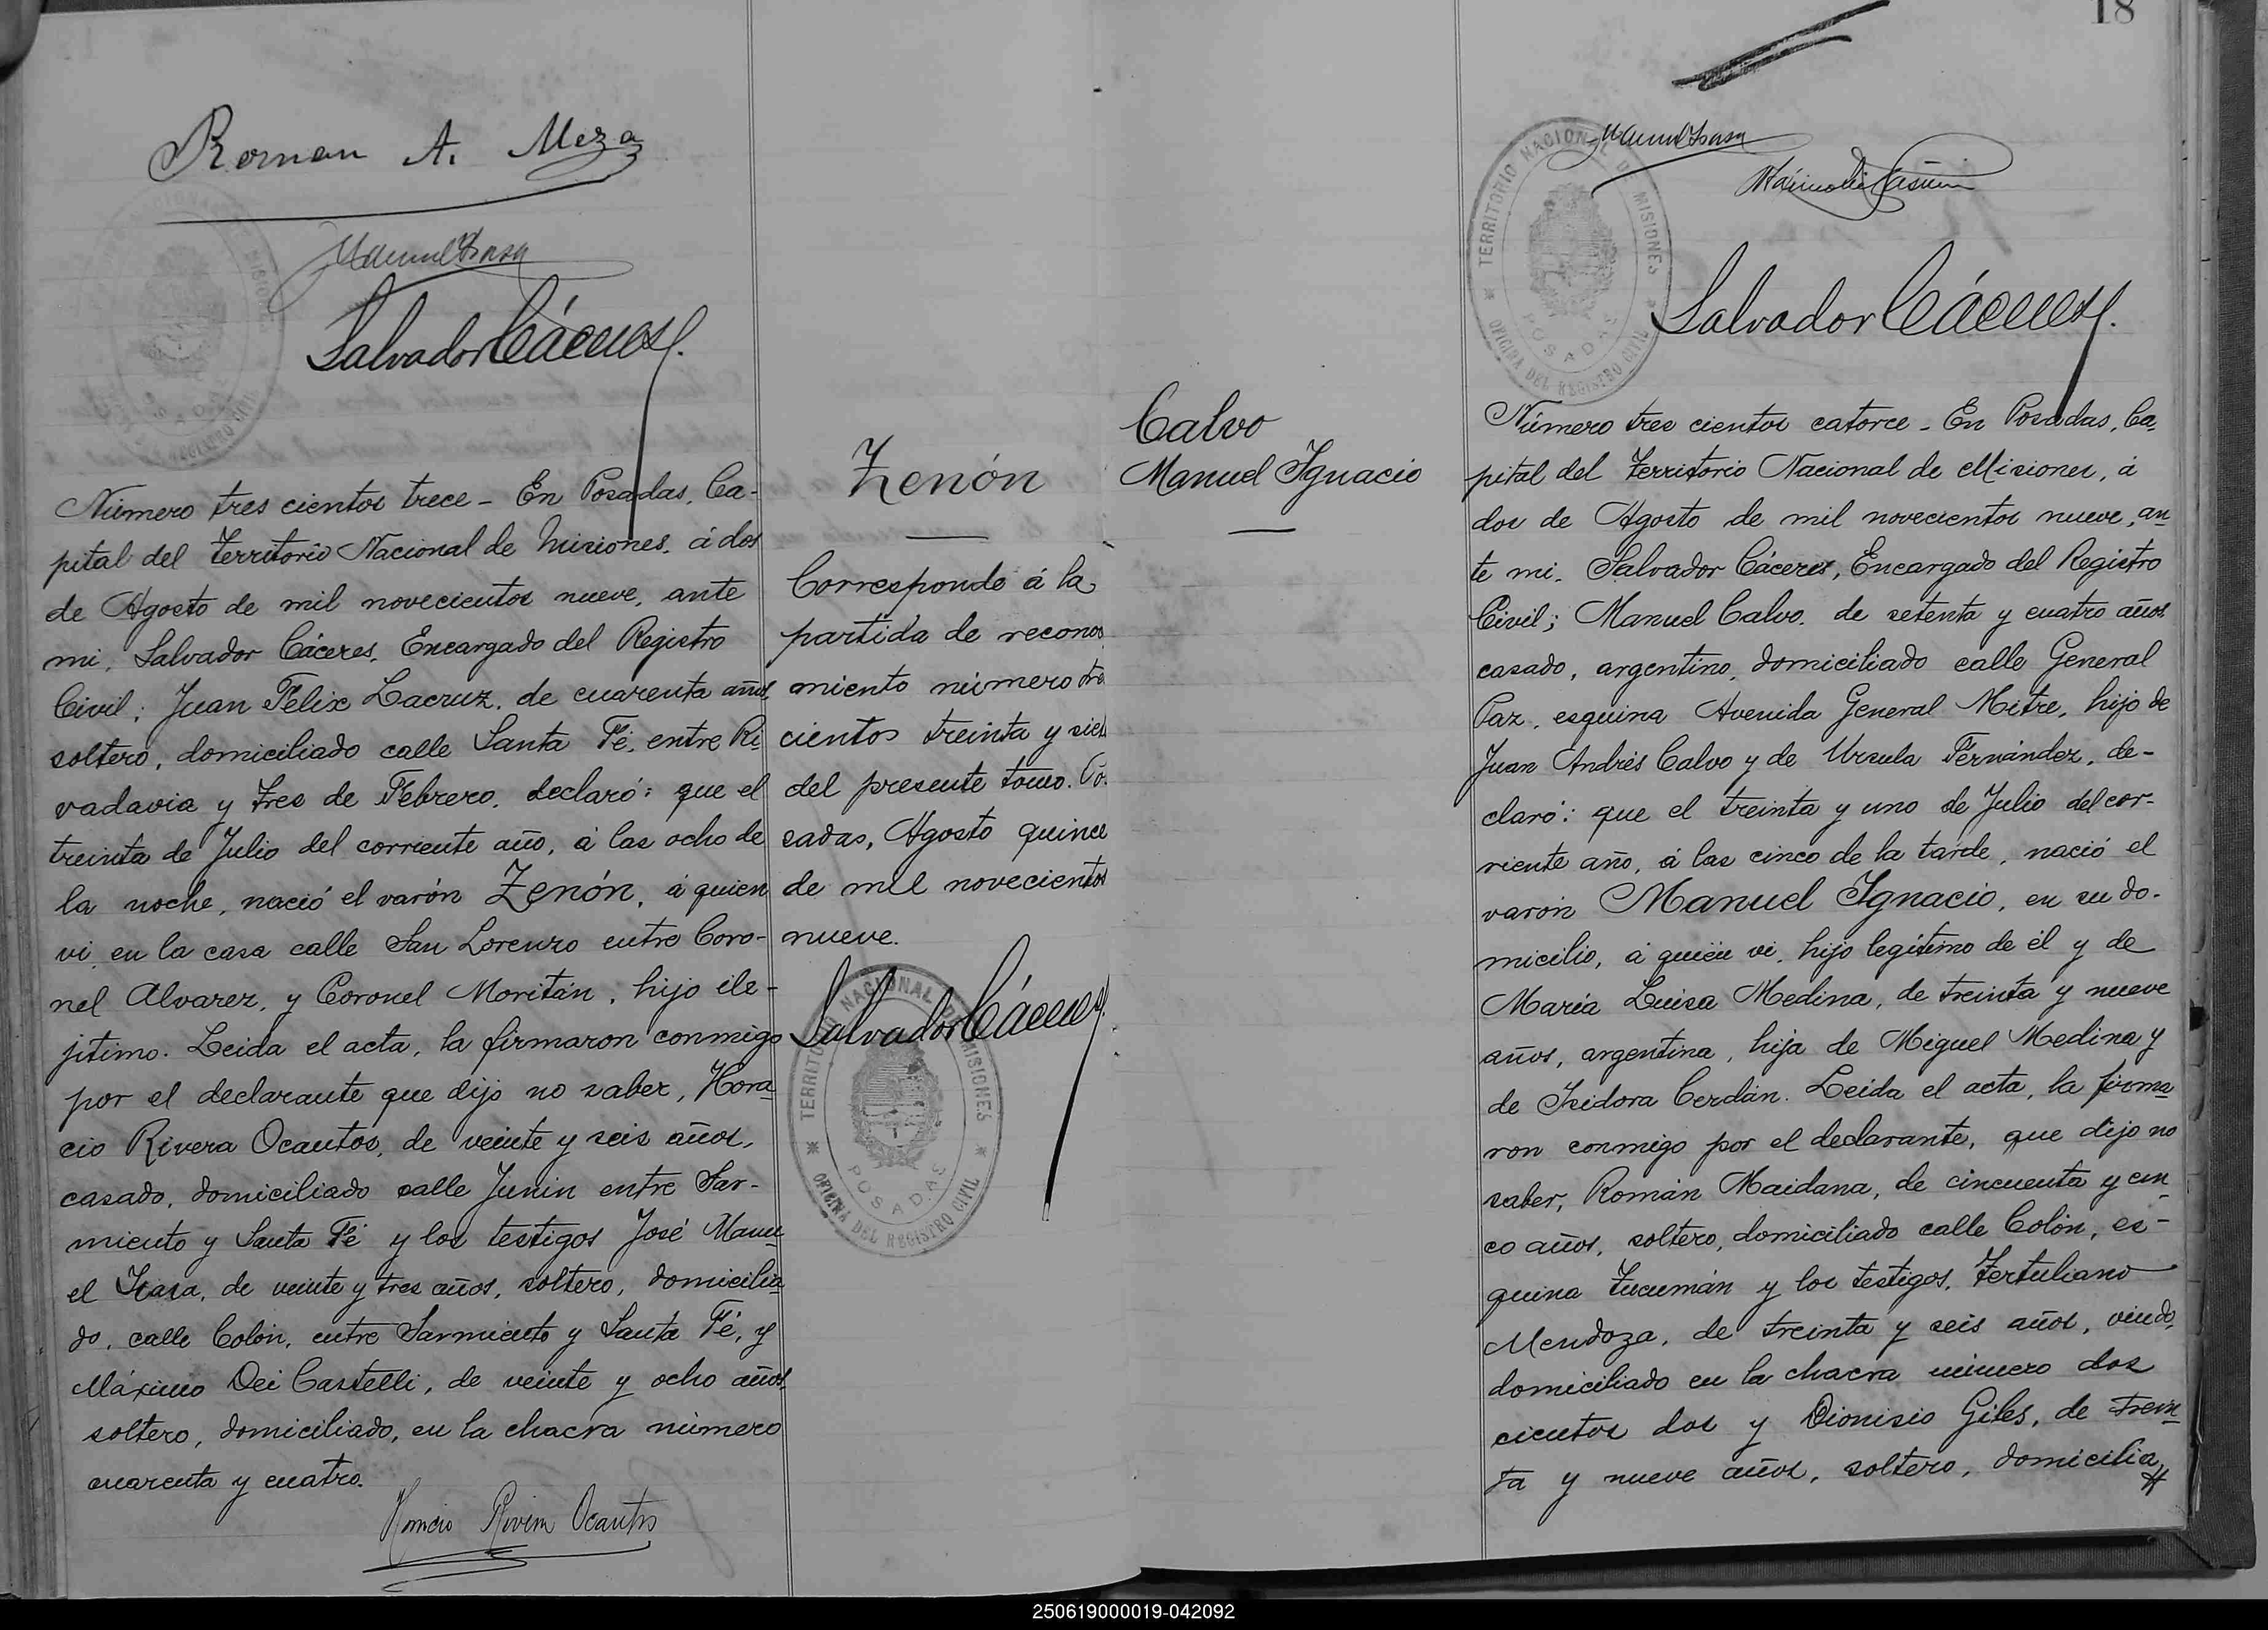 Roman A. Meza
Salvador Cáceres
Número tres cientos trece - En Posadas, Ca-
pital del Territorio Nacional de Misiones, á dos
de Agosto de mil novecientos nueve, ante
mi, Salvador Cáceres, Encargado del Registro
Civil; Juan Felix Lacruz, de cuarenta años,
soltero, domiciliado calle Santa Fé, entre Ri
vadavia y Tres de Febrero, declaró: que el
treinta de Julio del corriente año, á las ocho de
la noche, nació el varón Zenón, á quien
vi, en la casa calle San Lorenzo entre Coro-
nel Alvarez, y Coronel Moritán, hijo ile-
jitimo. Leida el acta, la firmaron conmigo
por el declarante que dijo no saber, Hora
cio Rivera Ocantos, de veinte y seis años,
casado, domiciliado calle Junin entre Sar-
miento y Santa Fé y los testigos José Manu
el Isasa, de veinte y tres años, soltero, domicilia
do, calle Colón, entre Sarmiento y Santa Fé, y
Máximo Dei Castelli, de veinte y ocho años,
soltero, domiciliado, en la chacra número
cuarenta y cuatro.
Horacio Rivera Ocantos
Zenón
Corresponde á la
partida de recono
miento número tre
cientos treinta y siet
del presente tomo. Po-
sadas, Agosto quince
de mil novecientos
nueve.
Salvador Cáceres
TERRITORIO NACIONAL DE MISIONES
POSADAS
OFICINA DEL REGISTRO CIVIL
Calvo
Manuel Ignacio
18
TERRITORIO NACIONAL DE MISIONES
POSADAS
OFICINA DEL REGISTRO CIVIL
Salvador Cáceres
Número tres cientos catorce - En Posadas, Ca
pital del Territorio Nacional de Misiones, á
dos de Agosto de mil novecientos nueve, an
te mi, Salvador Cáceres, Encargado del Registro
Civil; Manuel Calvo, de setenta y cuatro años
casado, argentino, domiciliado calle General
Paz, esquina Avenida General Mitre, hijo de
Juan Andrés Calvo y de Ursula Fernández, de-
claró: que el treinta y uno de Julio del cor-
riente año, á las cinco de la tarde, nació el
varón Manuel Ignacio, en su do-
micilio, á quién vi, hijo legítimo de él y de
María Luisa Medina, de treinta y nueve
años, argentina, hija de Miguel Medina y
de Isidora Cerdán. Leida el acta, la firma
ron conmigo por el declarante, que dijo no
saber, Román Maidana, de cincuenta y cin
co años, soltero, domiciliado calle Colón, es-
quina Tucumán y los testigos, Tertuliano
Mendoza, de treinta y seis años, viudo,
domiciliado en la chacra número dos
cientos dos y Dionisio Giles, de trein
ta y nueve años, soltero, domicilia
250619000019-042092